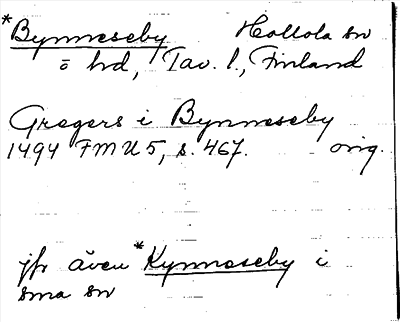 *Bynneseby Hollola sn
ö hd, Tav. l., Finland
Gregers i Bynneseby
1494 FMU 5, s. 467. orig.
jfr även *Kynneseby i
sma sn